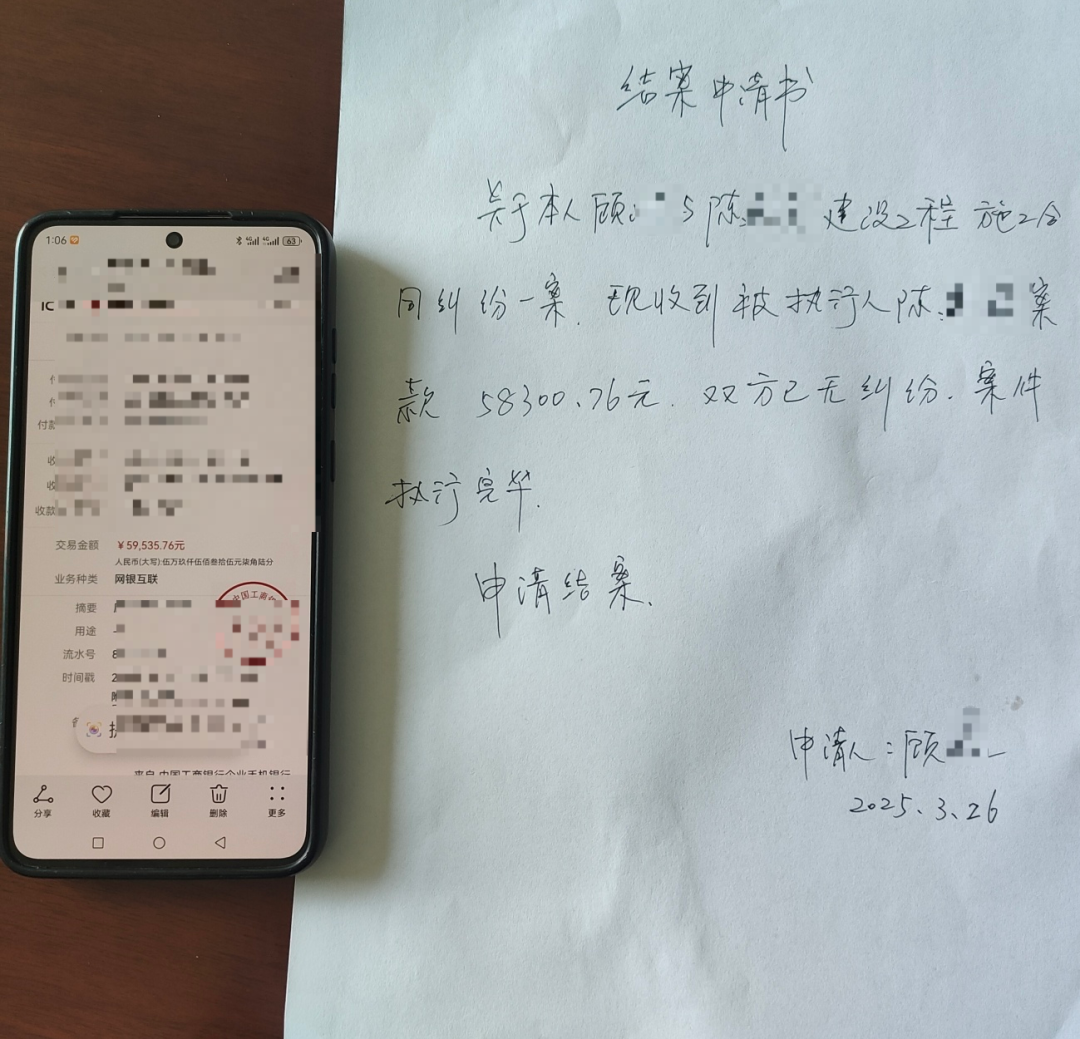 1:06
63
IC
付款
收
收
收款
交易金额 ￥59,535.76元
人民币(大写):伍万玖仟伍佰叁拾伍元柒角陆分
业务种类 网银互联
中国工商
摘要
用途
流水号 8
时间戳 2
来自 中国工商银行企业手机银行
分享 收藏 编辑 删除 更多
结案申请书
关于本人顾 与陈 建设工程施工合
同纠纷一案.现收到被执行人陈 案
款 58300.76元.双方已无纠纷.案件
执行完毕.
申请结案.
申请人:顾
2025.3.26